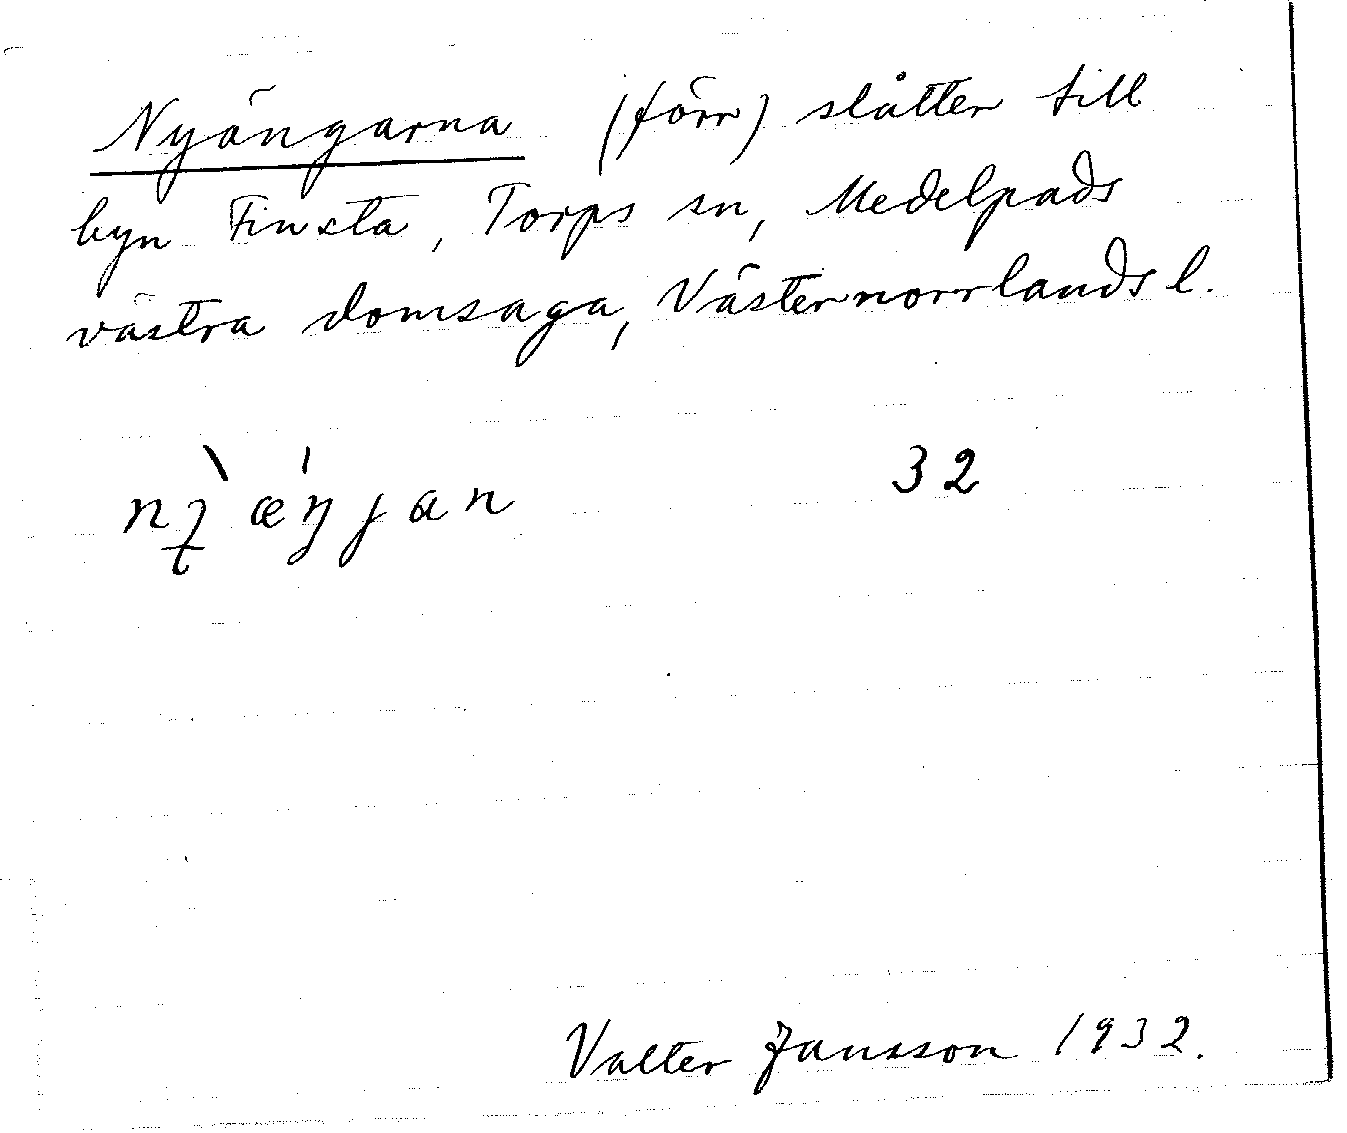 Nyängarna (förr) slåtter till
byn Finsta, Torps sn, Medelpads
västra domsaga, Västernorrlands l.
32
Valter Jansson 1932.